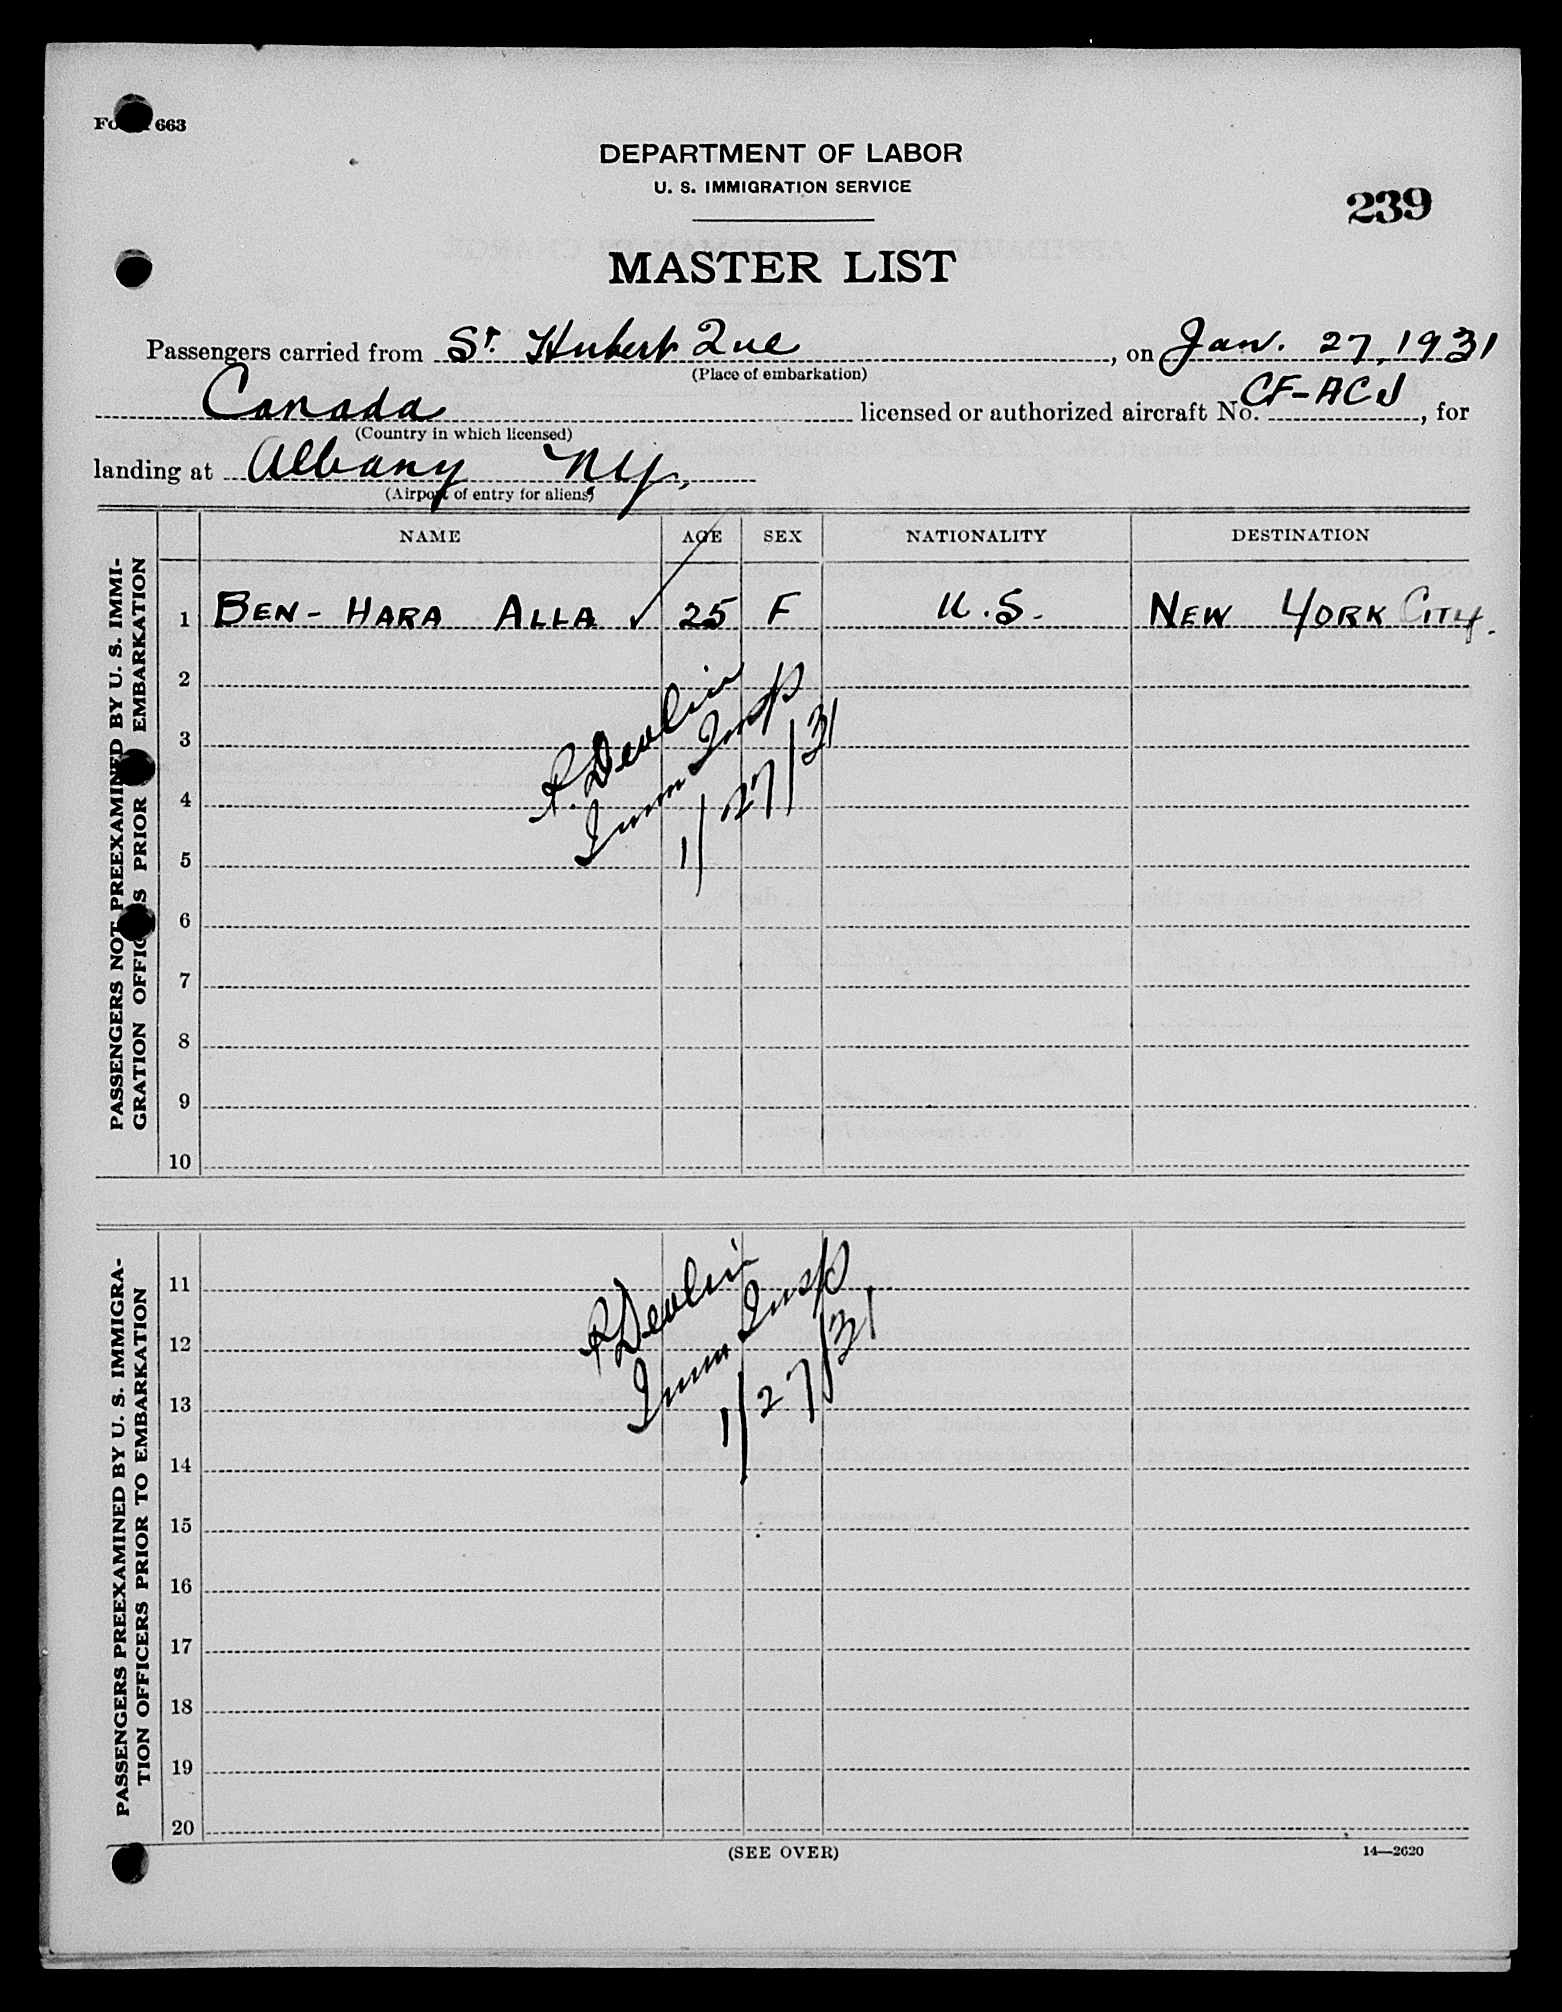 Form 663
DEPARTMENT OF LABOR
U. S. IMMIGRATION SERVICE
239
MASTER LIST
Passengers carried from St. Hubert Que, on Jan. 27, 1931
(Place of embarkation)
Canada licensed or authorized aircraft No. CF-ACJ, for
(Country in which licensed)
landing at Albany N.Y.,
(Airport of entry for aliens)
NAME AGE SEX NATIONALITY DESTINATION
PASSENGERS NOT PREEXAMINED BY U. S. IMMI-
GRATION OFFICERS PRIOR EMBARKATION
1 BEN-HARA ALLA ✓ 25 F U.S. NEW YORK CITY.
2
3
4
5
6
7
8
9
10
R. Devlin
Imm Insp
1/27/31
PASSENGERS PREEXAMINED BY U. S. IMMIGRA-
TION OFFICERS PRIOR TO EMBARKATION
11
12
13
14
15
16
17
18
19
20
R Devlin
Imm Insp
1/27/31
(SEE OVER)
14—2620